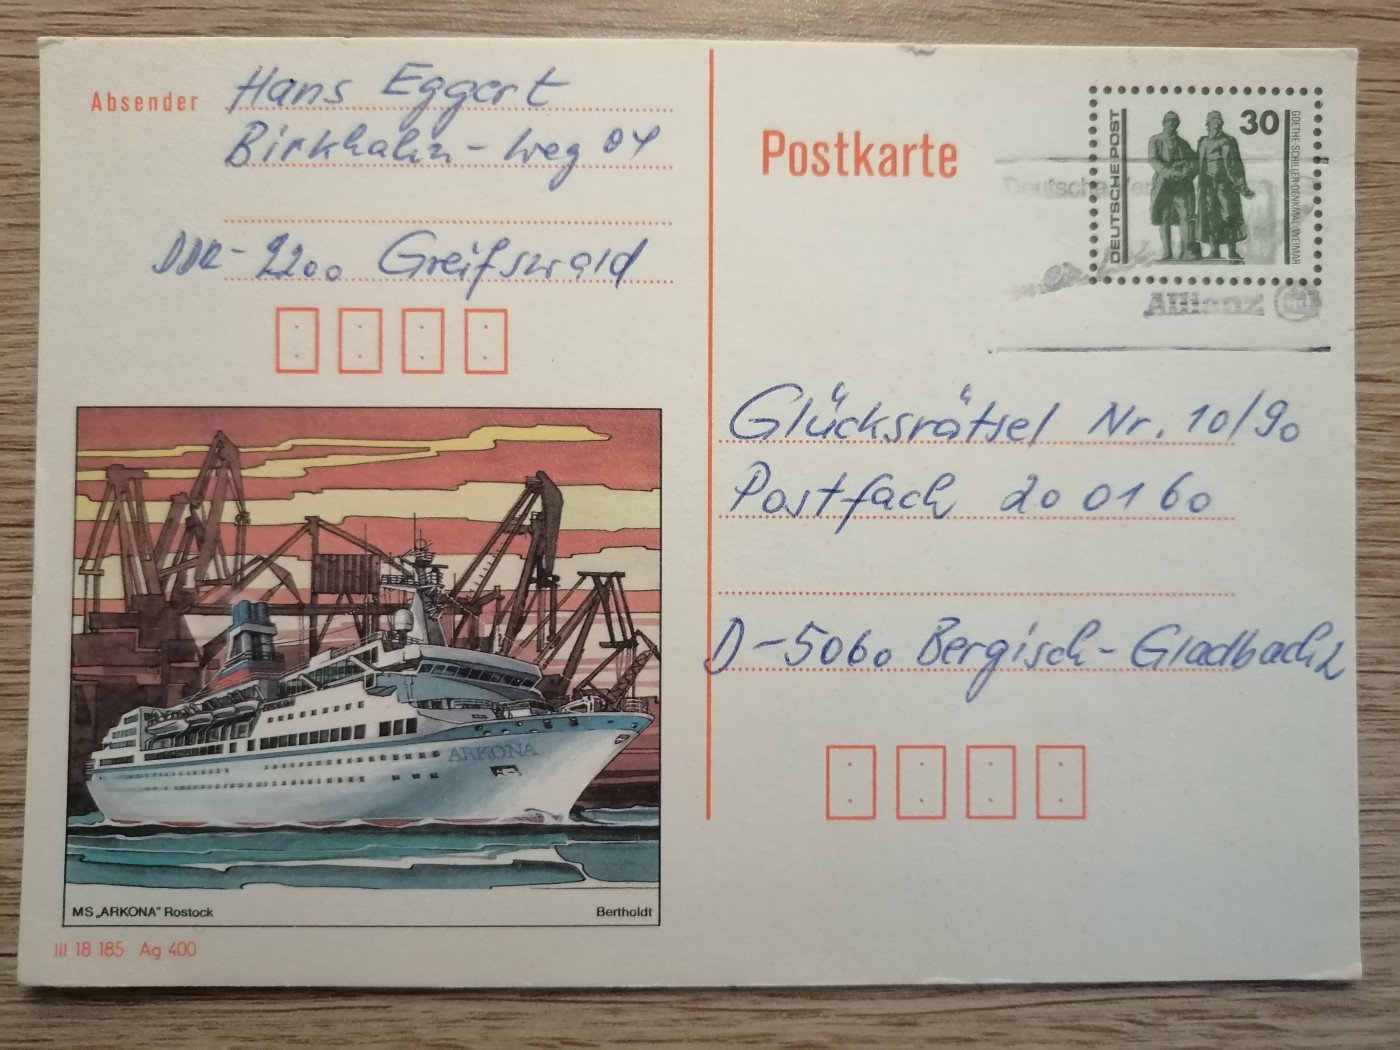 Absender Hans Eggert
Birkhahn-weg 04
DDR-2200 Greifswald
Postkarte
DEUTSCHE POST
30
GOETHE-SCHILLER-DENKMAL WEIMAR
Deutsche
Allianz
Glücksrätsel Nr. 10/90
Postfach 20 01 60
D-5060 Bergisch-Gladbach 2
ARKONA
MS „ARKONA" Rostock
Bertholdt
III 18 185 Ag 400